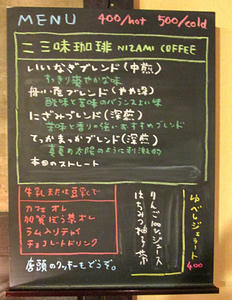 MENU 400/hot 500/cold
二三味珈琲 NIZAMI COFFEE
いいなぎブレンド(中煎)
すっきり爽やかな味
舟小屋ブレンド(やや深)
酸味と苦味のバランスよい味
にざみブレンド(深煎)
苦味と香りの強いおすすめブレンド
てっかまっかブレンド(深煎)
真夏の太陽のように刺激的
本日のストレート
牛乳または豆乳で
カフェオレ
加賀ぼう茶オレ
ラム入りテレイ
チョコレートドリンク
りんご100%ジュース
はちみつ柚子茶
ゆべしジェラート
400
店頭のクッキーもどうぞ。